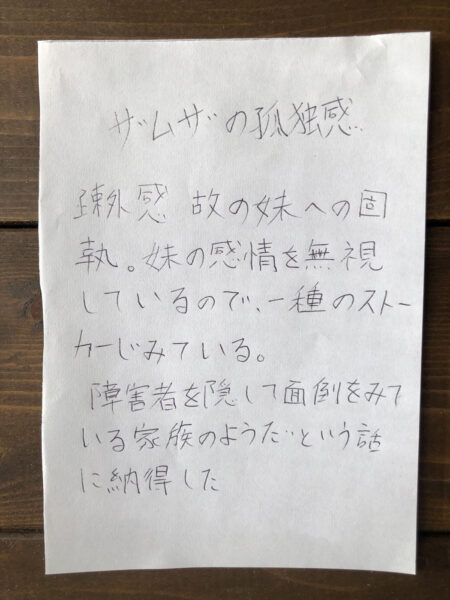 ザムザの孤独感
疎外感 故の妹への固
執。妹の感情を無視
しているので、一種のストー
カーじみている。
障害者を隠して面倒をみて
いる家族のようだという話
に納得した